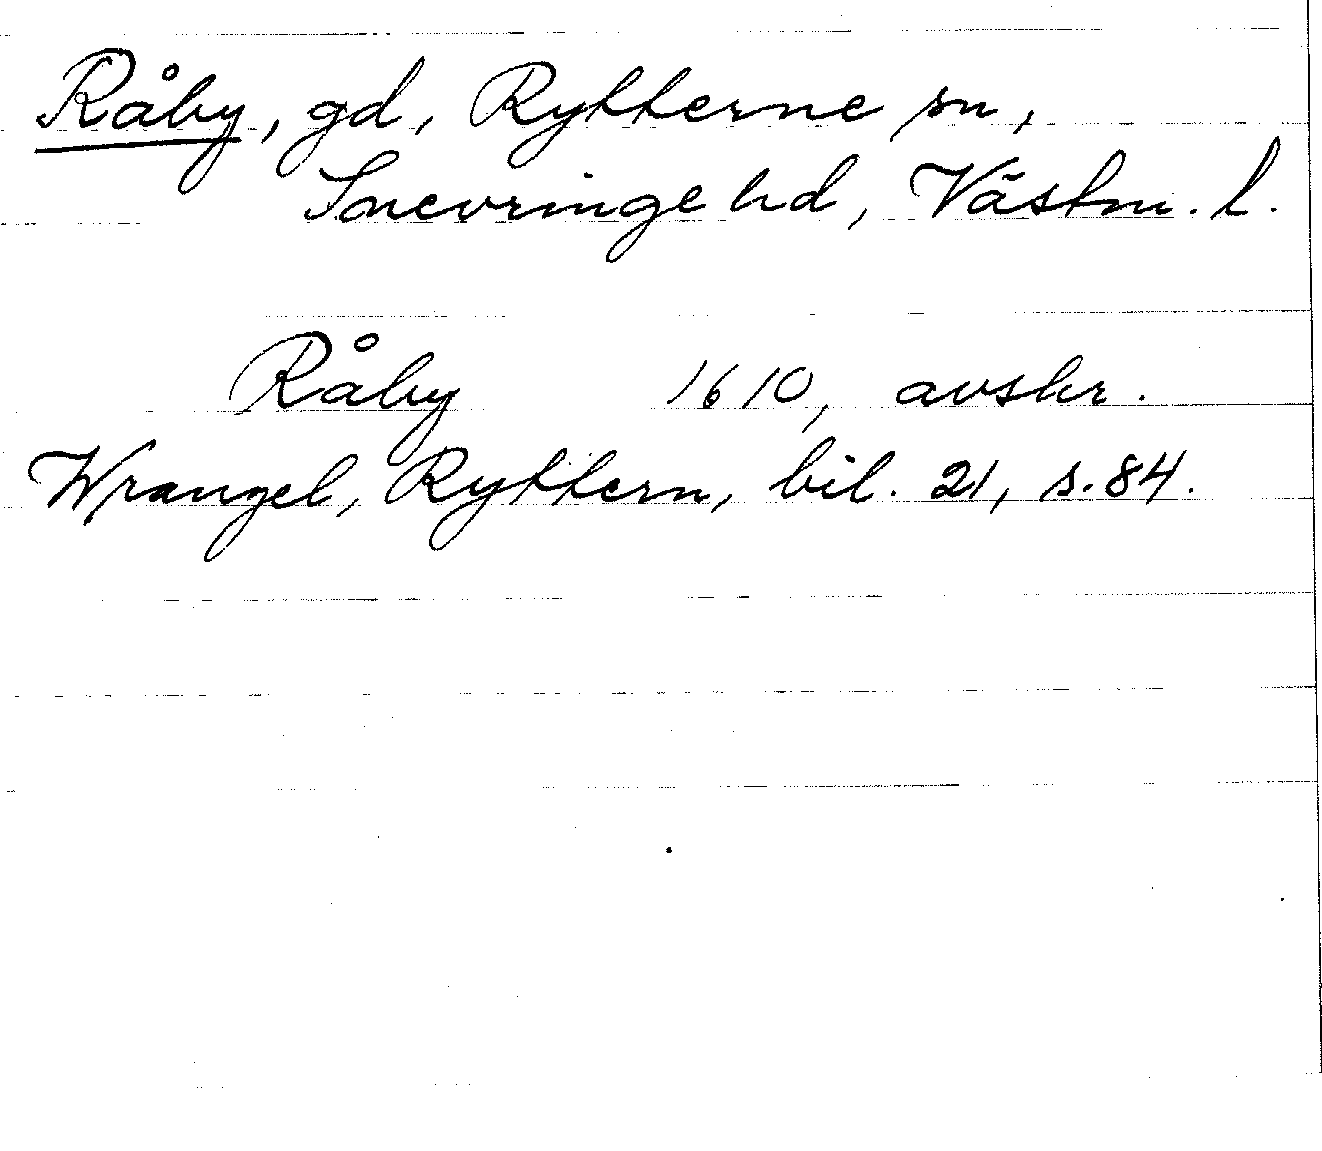 Råby, gd, Rytterne sn,
Snevringe hd, Västm. l.
Råby 1610, avskr.
Wrangel, Ryttern, bil. 21, s. 84.